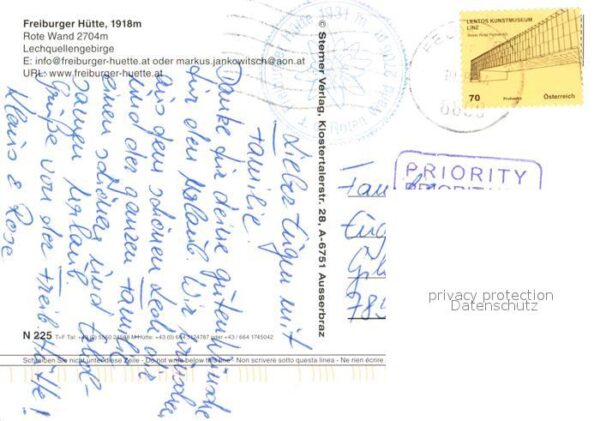 Freiburger Hütte, 1918m
Rote Wand 2704m
Lechquellengebirge
E: info@freiburger-huette.at oder markus.jankowitsch@aon.at
URL: www.freiburger-huette.at
© Sterner Verlag, Klostertalerstr. 28, A-6751 Ausserbraz
LENTOS KUNSTMUSEUM
LINZ
70
Österreich
PRIORITY
PRIORITY
Lieber Eugen mit
Familie.
Danke für deine guten Wünsche
für den Urlaub. Wir wünschen
aus dem schönen Lech dir
und der ganzen Familie
einen schönen und
Urlaub
Grüße von der Freib. Hütte!
Klaus & Rose
Eug
785
privacy protection
Datenschutz
N 225
Schreiben Sie nicht unter diese Zeile - Do not write below this line - Non scrivere sotto questa linea - Ne rien écrire